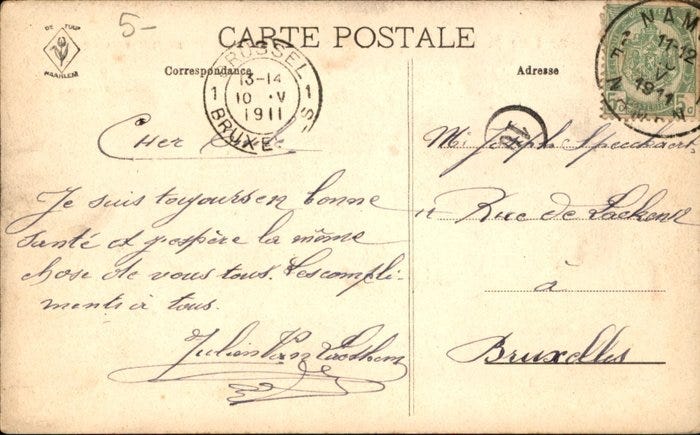 DE TULP
HAARLEM
5-
CARTE POSTALE
Correspondance
Adresse
BRUSSEL
1 13-14 1
10 V
1911
BRUXE S
NAM
11-12
V
1911
NAMEN
5c
Cher
Je suis toujours en bonne
santé et j'espère la même
chose de vous tous. Les compli-
ments à tous.
Julien Van
Mr Joseph Speeckaert
Rue de Laeken
à
Bruxelles